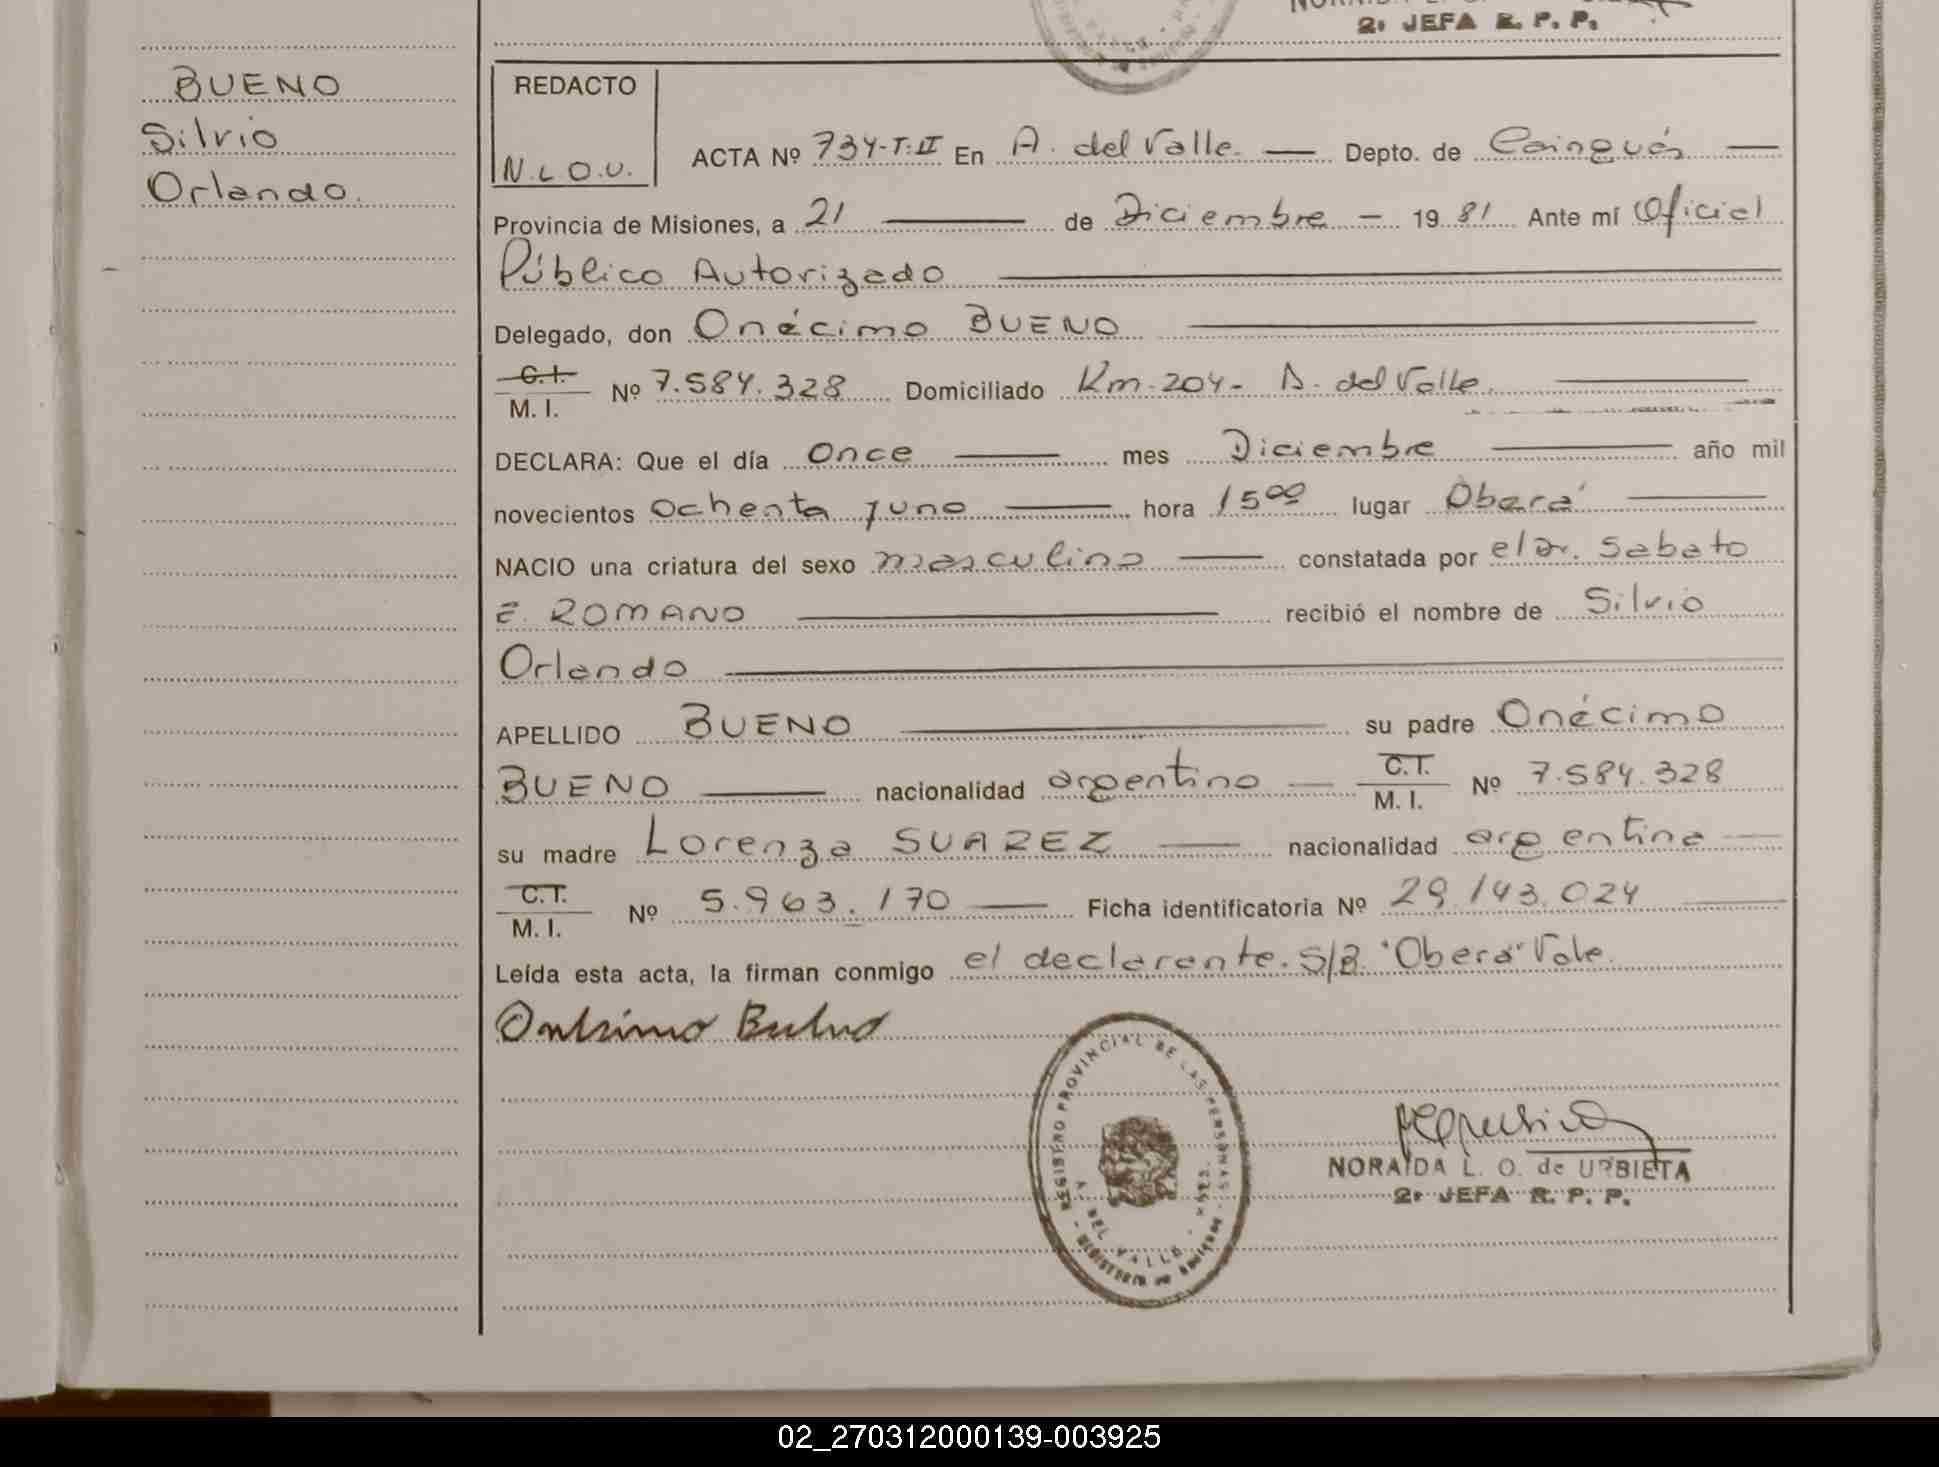 2ª JEFA R. P. P.
BUENO
Silvio
Orlando.
REDACTO
N.L.O.U.
ACTA Nº 734-T-II En A. del Valle. — Depto. de Cainguás —
Provincia de Misiones, a 21 — de Diciembre — 1981 Ante mí Oficial
Público Autorizado
Delegado, don Onécimo BUENO
C.I.
M. I. Nº 7.584.328 Domiciliado Km. 204 - A. del Valle.
DECLARA: Que el día Once — mes Diciembre — año mil
novecientos Ochenta y uno — hora 15 00 lugar Oberá —
NACIO una criatura del sexo masculino — constatada por el Dr. Sabato
E. ROMANO — recibió el nombre de Silvio
Orlando
APELLIDO BUENO — su padre Onécimo
BUENO — nacionalidad argentino — C.T.
M. I. Nº 7.584.328
su madre Lorenza SUAREZ — nacionalidad argentina —
C.T.
M. I. Nº 5.963.170 — Ficha identificatoria Nº 29.143.024
Leída esta acta, la firman conmigo el declarante. S/B. "Oberá" Vale.
Onésimo Bueno
REGISTRO PROVINCIAL DE LAS PERSONAS
A. DEL VALLE - MNES.
NORAIDA L. O. de URBIETA
2ª JEFA R. P. P.
02_270312000139-003925